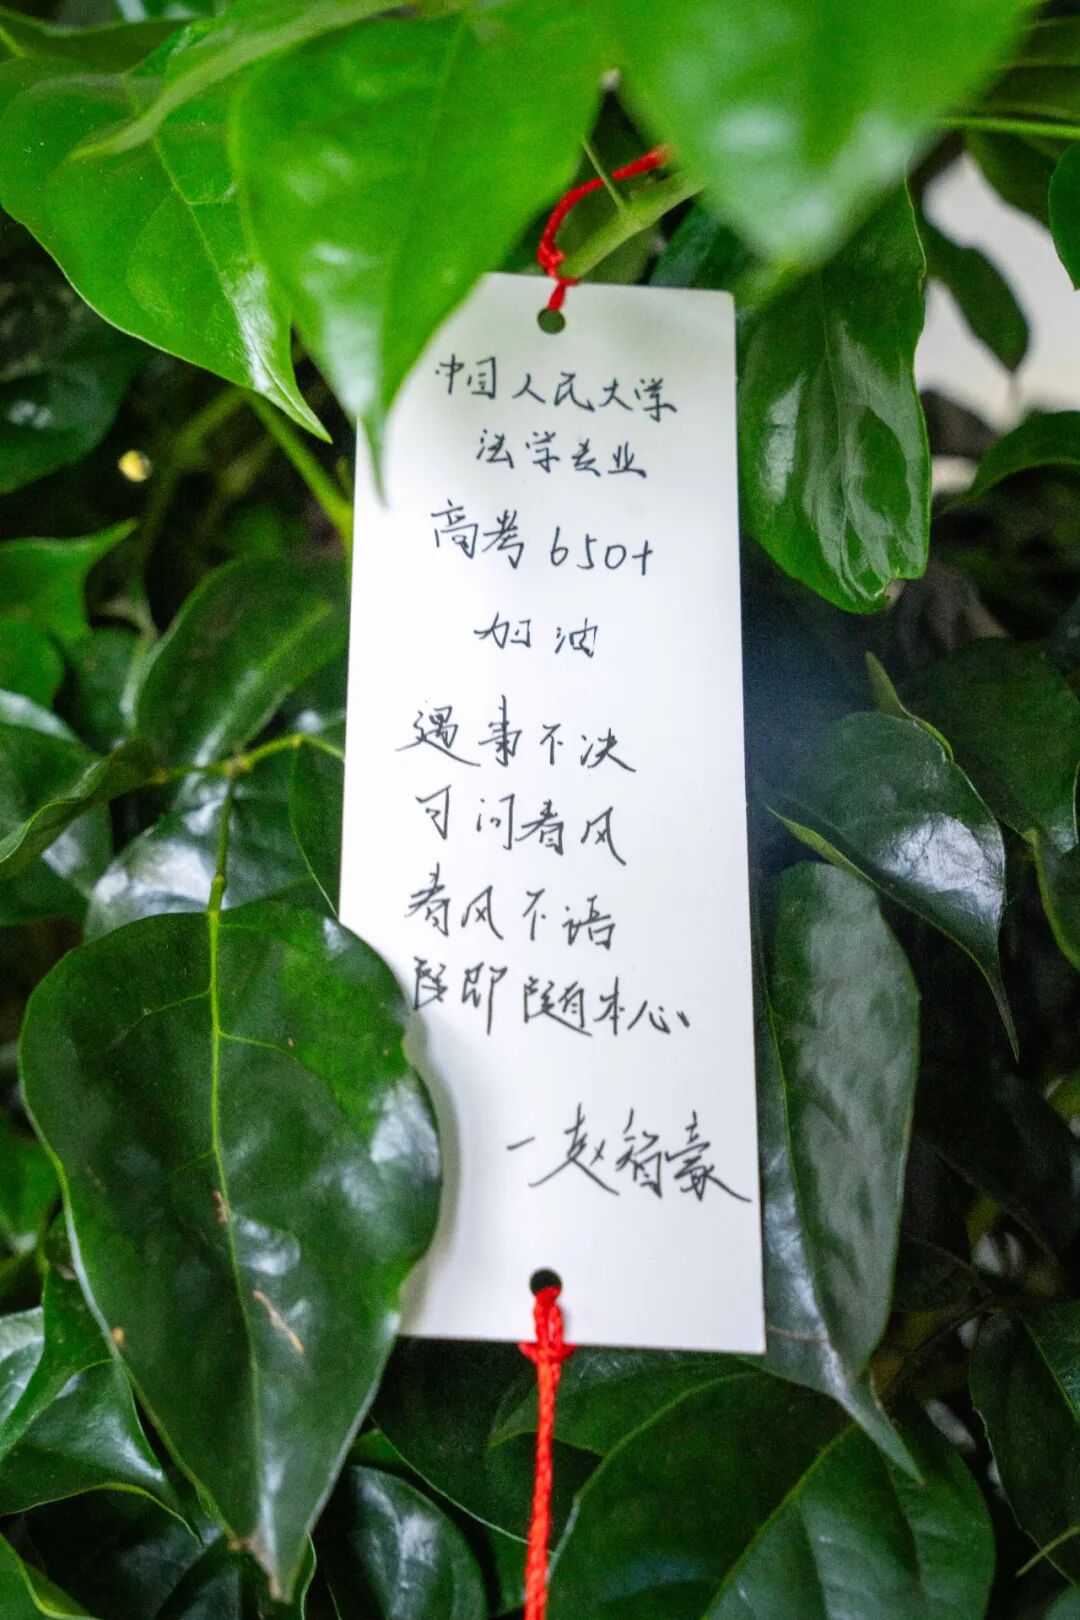 中国人民大学
法学专业
高考650+
加油
遇事不决
可问春风
春风不语
即随本心
一赵智豪